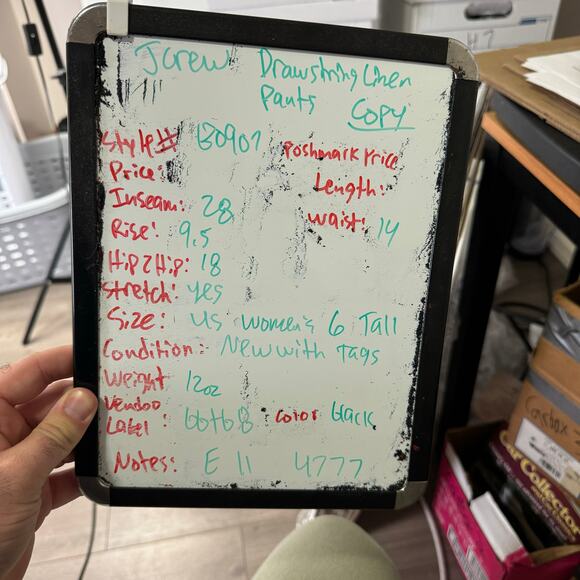 Jcrew Drawstring Linen
Pants COPY
Style# B0907 Poshmark Price
Price: Length:
Inseam: 28 waist: 14
Rise: 9.5
Hip 2 Hip: 18
Stretch: yes
Size: US women's 6 Tall
Condition: New with Tags
Weight 12oz
Vendoo
Label: color black
Notes: E 11 4777
Car Collector